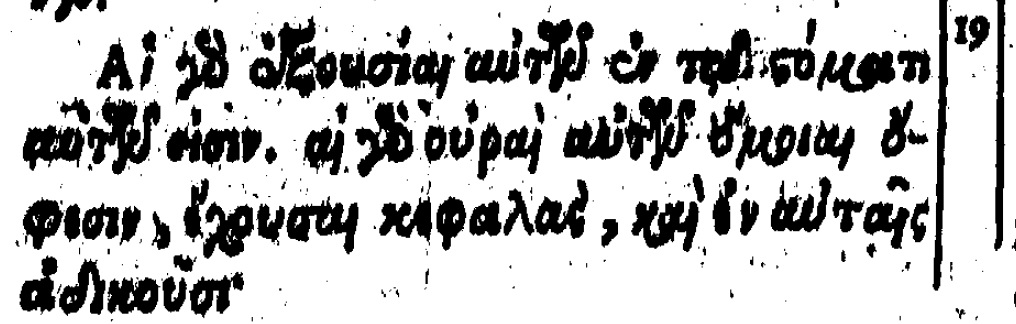 Αἱ γὰρ ἐξουσίαι αὐτῶν ἐν τῷ στόματι 19
αὐτῶν εἰσιν. αἱ γὰρ οὐραὶ αὐτῶν ὅμοιαι ὄ-
φεσιν, ἔχουσαι κεφαλὰς, καὶ ἐν αὐταῖς
ἀδικοῦσι·